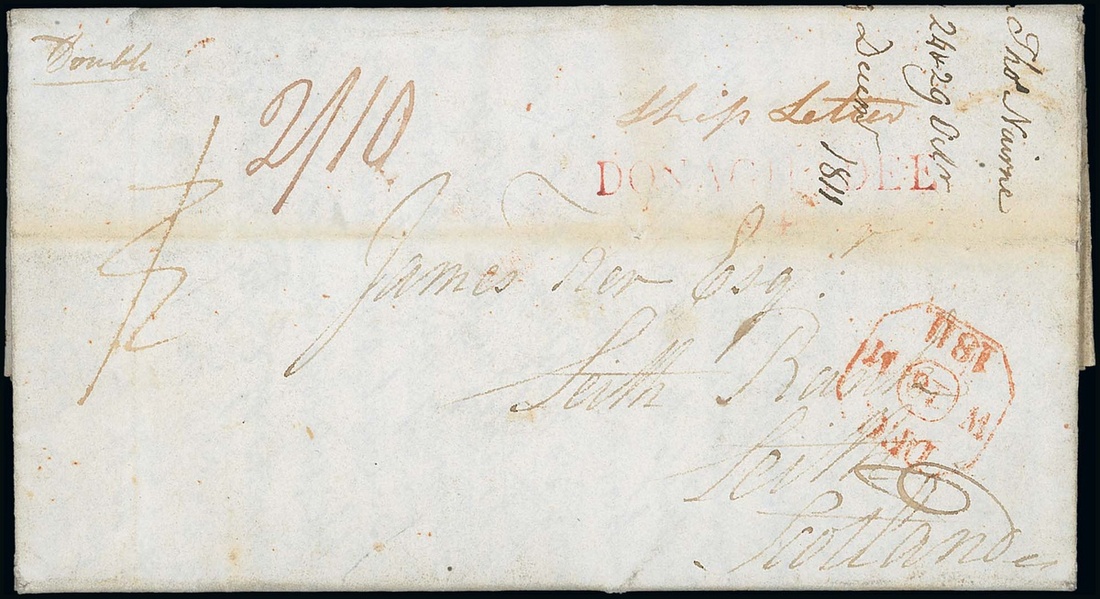 Double
2/10
Ship Letter
DONAGHADEE
Thos Nairne
24 & 29 Octr
Decemr 1811
James Ker Esqr
Leith Bank
Leith
Scotland
DEC
1811